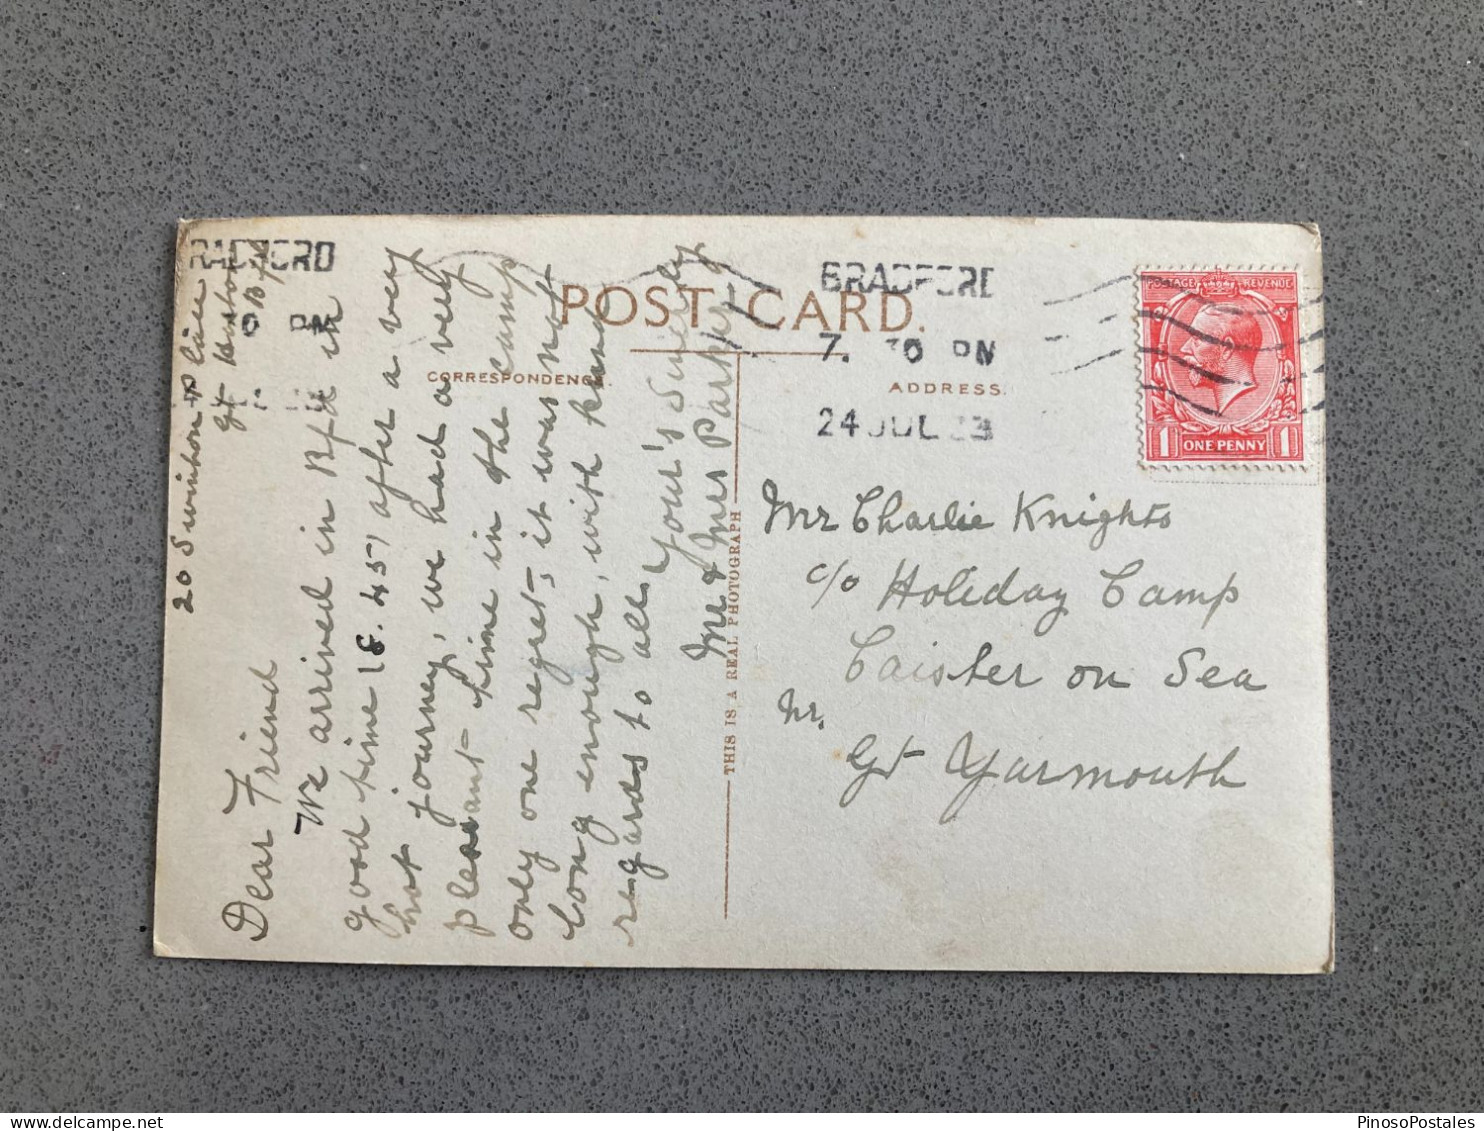 20 Swinton Place
Gt Horton
B/fd
Dear Friend
We arrived in B/fd in
good time 18.45, after a very
hot journey, we had a very
pleasant time in the camp
only one regret, it was not
long enough, with kind
regards to all
Your's Sincerly
Mr & Mrs Parker
BRADFORD
30 PM
POST CARD.
CORRESPONDENCE.
ADDRESS.
THIS IS A REAL PHOTOGRAPH
BRADFORD
7. 30 PM
24 JUL 23
POSTAGE REVENUE
1 ONE PENNY 1
Mr Charlie Knights
c/o Holiday Camp
Caister on Sea
Nr.
Gt Yarmouth
PinosoPostales